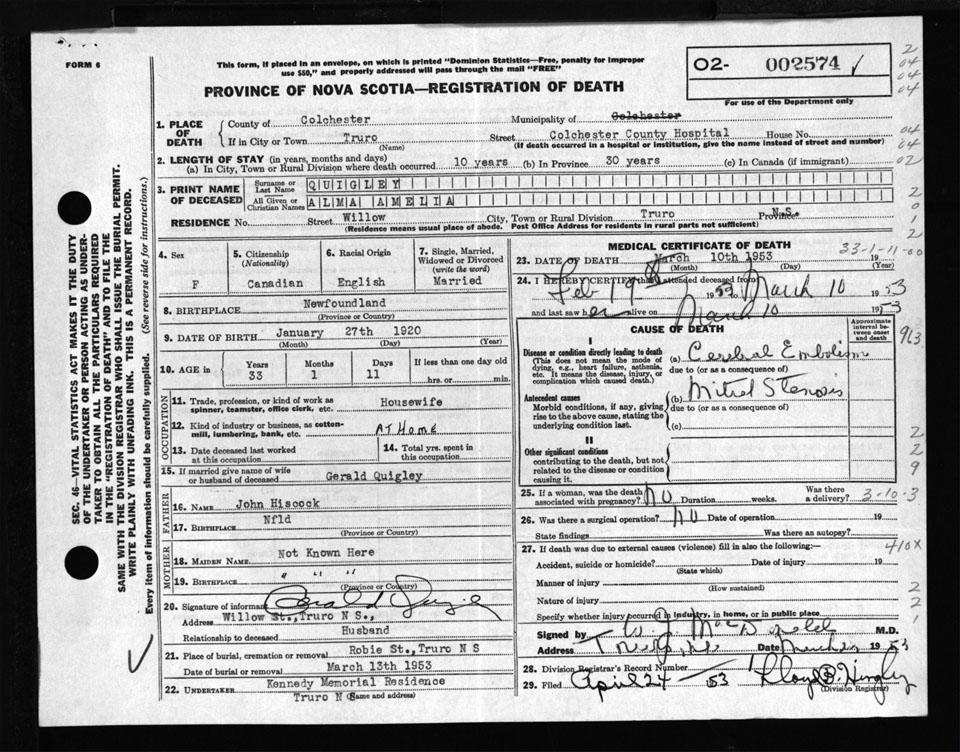 FORM 6
This form, if placed in an envelope, on which is printed "Dominion Statistics—Free, penalty for improper
use $50," and properly addressed will pass through the mail "FREE"
PROVINCE OF NOVA SCOTIA—REGISTRATION OF DEATH
O2- 002574 ✓
For use of the Department only
2
04
04
04
SEC. 46—VITAL STATISTICS ACT MAKES IT THE DUTY
OF THE UNDERTAKER OR PERSON ACTING AS UNDER-
TAKER TO OBTAIN ALL THE PARTICULARS REQUIRED
IN THE "REGISTRATION OF DEATH" AND TO FILE THE
SAME WITH THE DIVISION REGISTRAR WHO SHALL ISSUE THE BURIAL PERMIT.
WRITE PLAINLY WITH UNFADING INK. THIS IS A PERMANENT RECORD.
Every item of information should be carefully supplied. (See reverse side for instructions.)
1. PLACE OF DEATH
County of Colchester Municipality of Colchester
If in City or Town Truro Street Colchester County Hospital House No.
(Name) (If death occurred in a hospital or institution, give the name instead of street and number)
04
04
02
2. LENGTH OF STAY (in years, months and days)
(a) In City, Town or Rural Division where death occurred 10 years (b) In Province 30 years (c) In Canada (if immigrant)
3. PRINT NAME OF DECEASED
Surname or Last Name QUIGLEY
All Given or Christian Names ALMA AMELIA
RESIDENCE No. Street Willow City, Town or Rural Division Truro Province N.S.
(Residence means usual place of abode. Post Office Address for residents in rural parts not sufficient)
2
0
1
2
4. Sex
F
5. Citizenship
(Nationality)
Canadian
6. Racial Origin
English
7. Single, Married,
Widowed or Divorced
(write the word)
Married
8. BIRTHPLACE Newfoundland
(Province or Country)
9. DATE OF BIRTH January 27th 1920
(Month) (Day) (Year)
10. AGE in Years Months Days If less than one day old
33 1 11 hrs. or min.
OCCUPATION
11. Trade, profession, or kind of work as Housewife
spinner, teamster, office clerk, etc.
12. Kind of industry or business, as cotton-
mill, lumbering, bank, etc. AT HOME
13. Date deceased last worked
at this occupation
14. Total yrs. spent in
this occupation
15. If married give name of wife
or husband of deceased Gerald Quigley
FATHER
16. NAME John Hiscock
17. BIRTHPLACE Nfld
(Province or Country)
MOTHER
18. MAIDEN NAME Not Known Here
19. BIRTHPLACE " " "
(Province or Country)
20. Signature of informant Gerald Quigley
Address Willow St., Truro N S.,
Relationship to deceased Husband
21. Place of burial, cremation or removal Robie St., Truro N S
Date of burial or removal March 13th 1953
22. UNDERTAKER Kennedy Memorial Residence
Truro N S
(Name and address)
MEDICAL CERTIFICATE OF DEATH
33-1-11-00
23. DATE OF DEATH March 10th 1953 19
(Month) (Day) (Year)
24. I HEREBY CERTIFY that I attended deceased from
Feb 19 1953 March 10 1953
and last saw her alive on March 10 1953
CAUSE OF DEATH
Approximate interval between onset and death
I
Disease or condition directly leading to death
(This does not mean the mode of
dying, e.g., heart failure, asthenia,
etc. It means the disease, injury, or
complication which caused death.)
(a) Cerebral Embolism
due to (or as a consequence of)
Antecedent causes
Morbid conditions, if any, giving
rise to the above cause, stating the
underlying condition last.
(b) Mitral Stenosis
due to (or as a consequence of)
(c)
II
Other significant conditions
contributing to the death, but not
related to the disease or condition
causing it.
2
2
9
25. If a woman, was the death
associated with pregnancy? NO Duration weeks. Was there
a delivery? 3-10-3
26. Was there a surgical operation? NO Date of operation 19
State findings Was there an autopsy?
27. If death was due to external causes (violence) fill in also the following:— 410X
Accident, suicide or homicide? Date of injury 19
(State which)
Manner of injury
(How sustained)
Nature of injury
Specify whether injury occurred in industry, in home, or in public place
2
2
1
Signed by MacDonald M.D.
Address Truro, NS Date March 1953
28. Division Registrar's Record Number
29. Filed April 24 53 Lloyd B. Hingley
(Division Registrar)